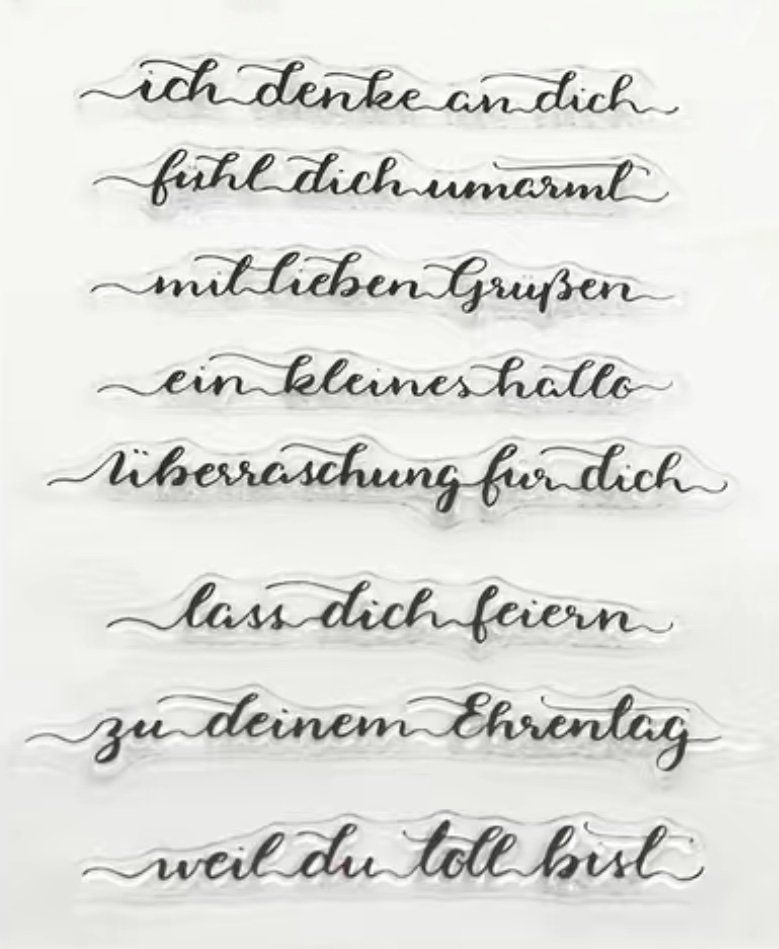 ich denke an dich
fühl dich umarmt
mit lieben Grüßen
ein kleines hallo
Überraschung für dich
lass dich feiern
zu deinem Ehrentag
weil du toll bist